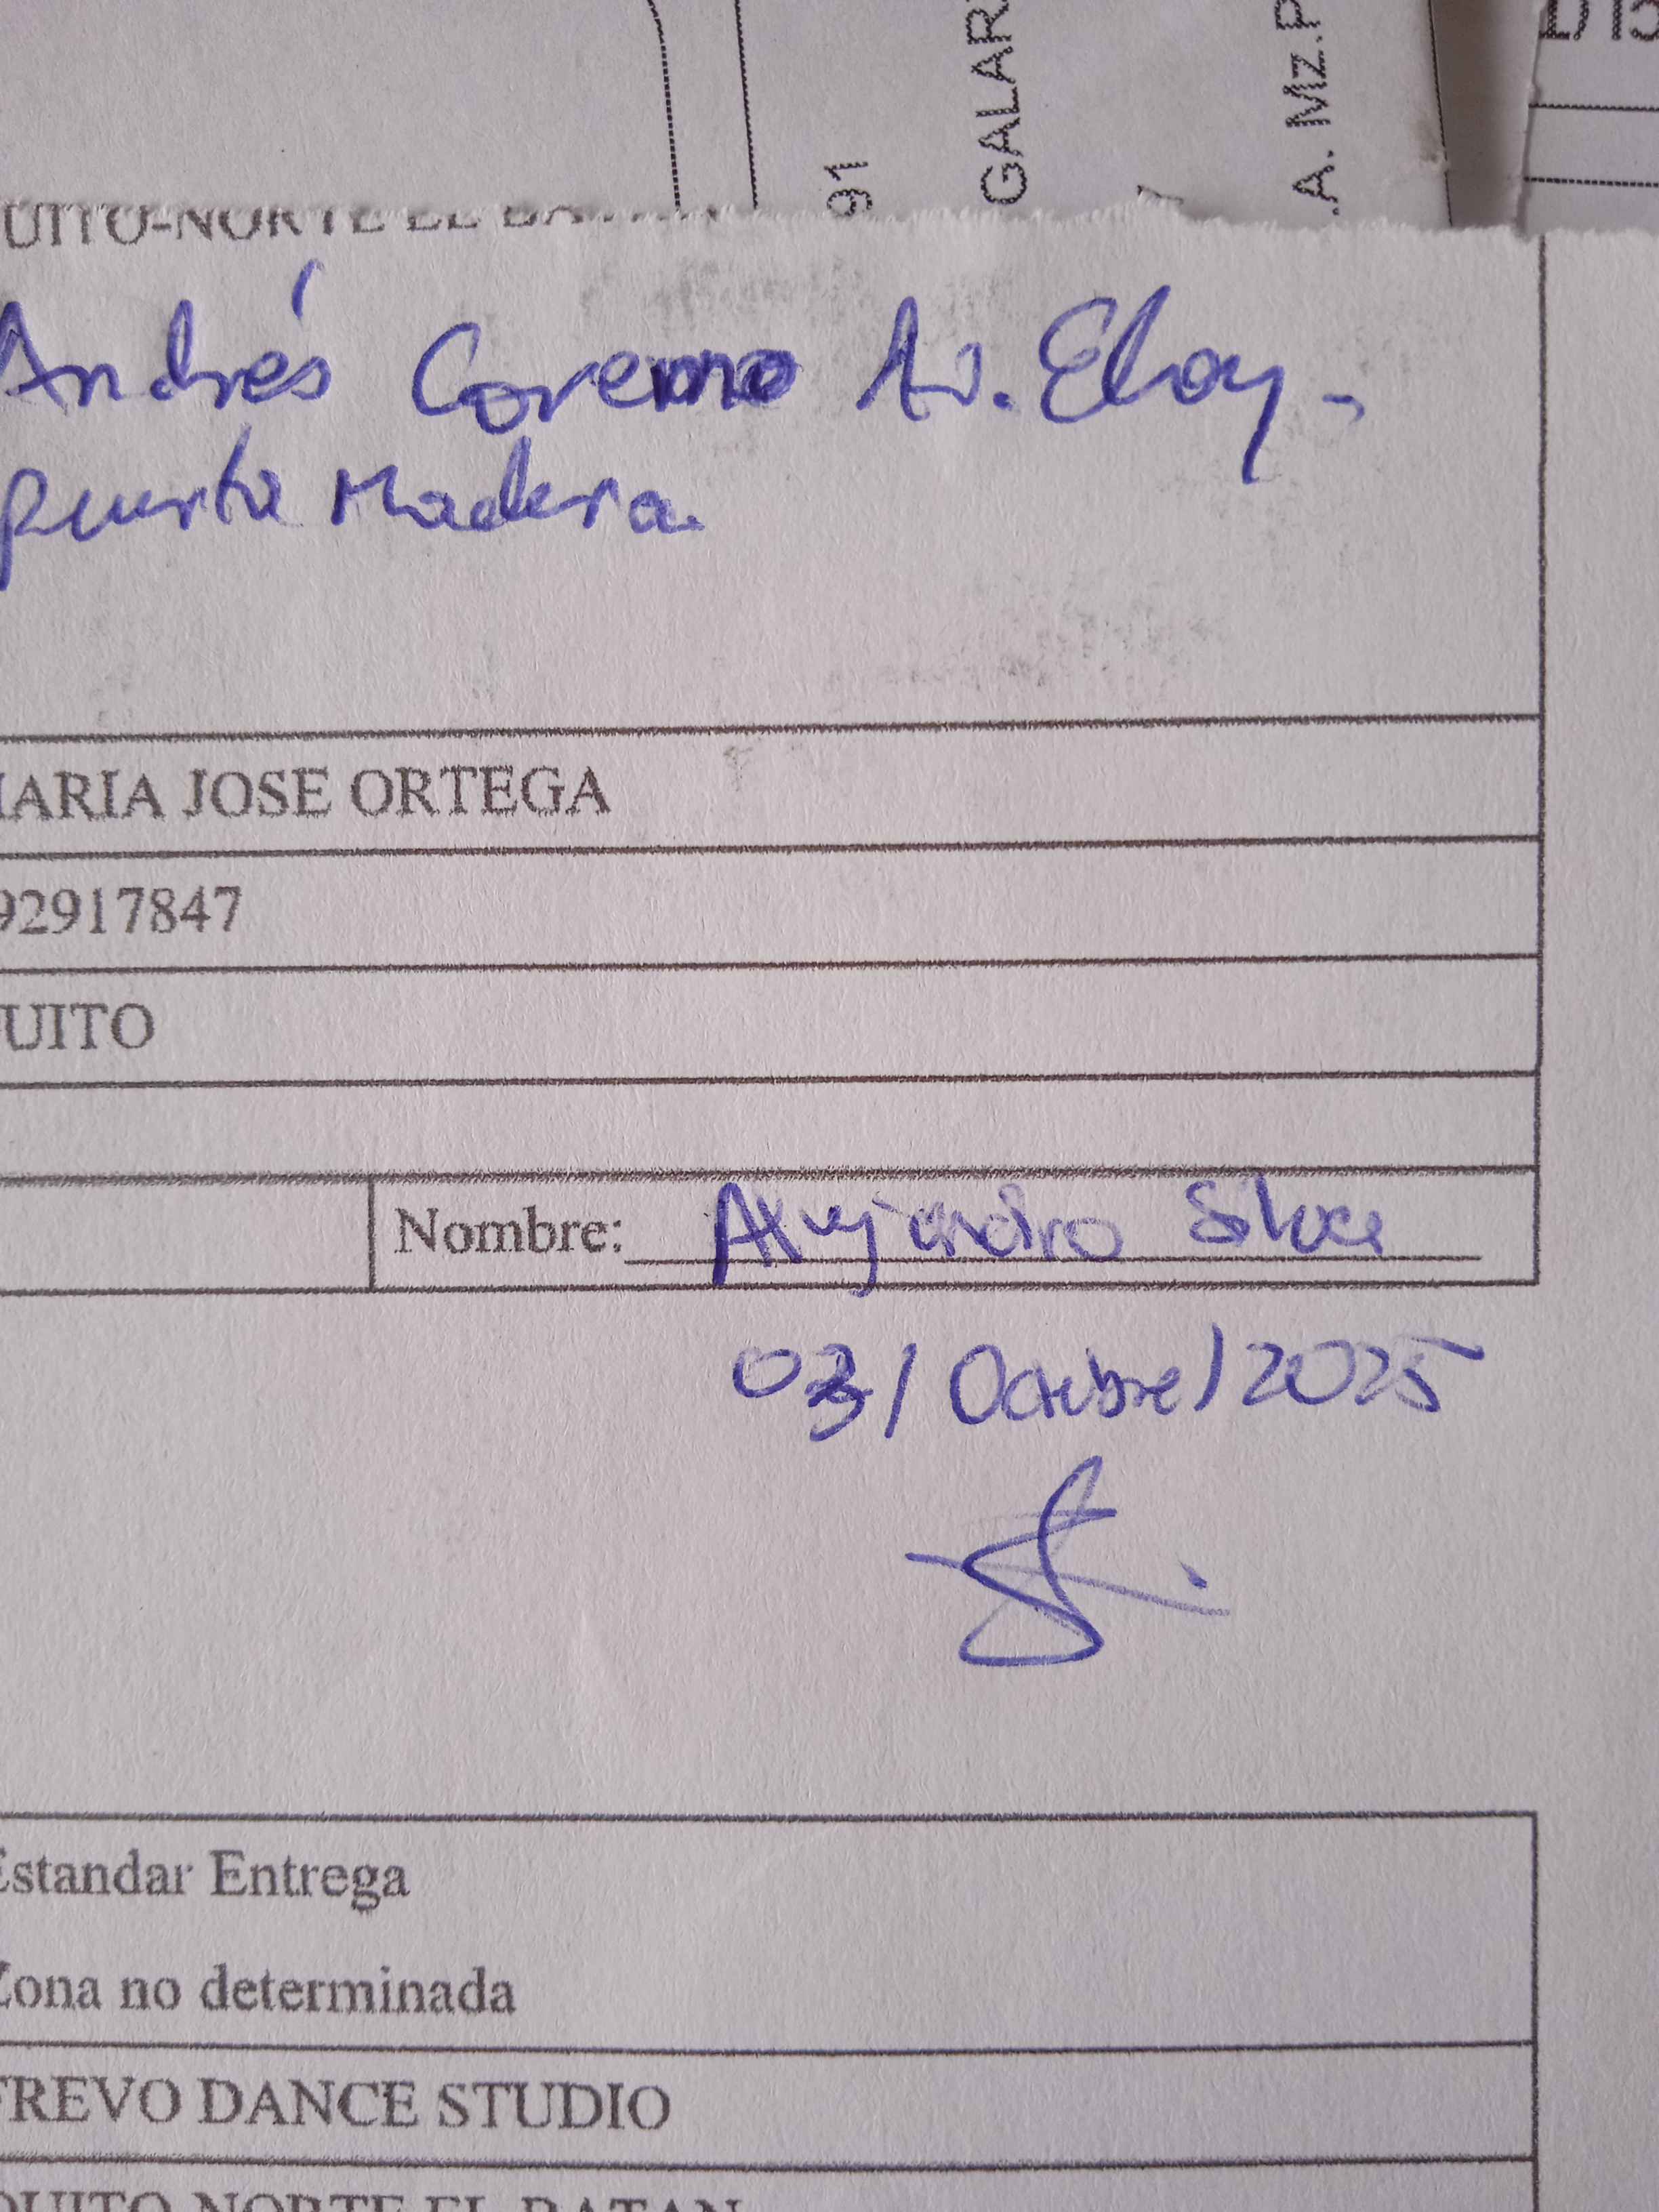 GALAR
91
A. Mz.P
UITO-NORTE EL BATAN
Andrés Coremo Av. Eloy -
puerta Madera.
MARIA JOSE ORTEGA
92917847
UITO
Nombre: Alejandro Silva
03/Octubre/2025
Estandar Entrega
Zona no determinada
FREVO DANCE STUDIO
QUITO-NORTE EL BATAN